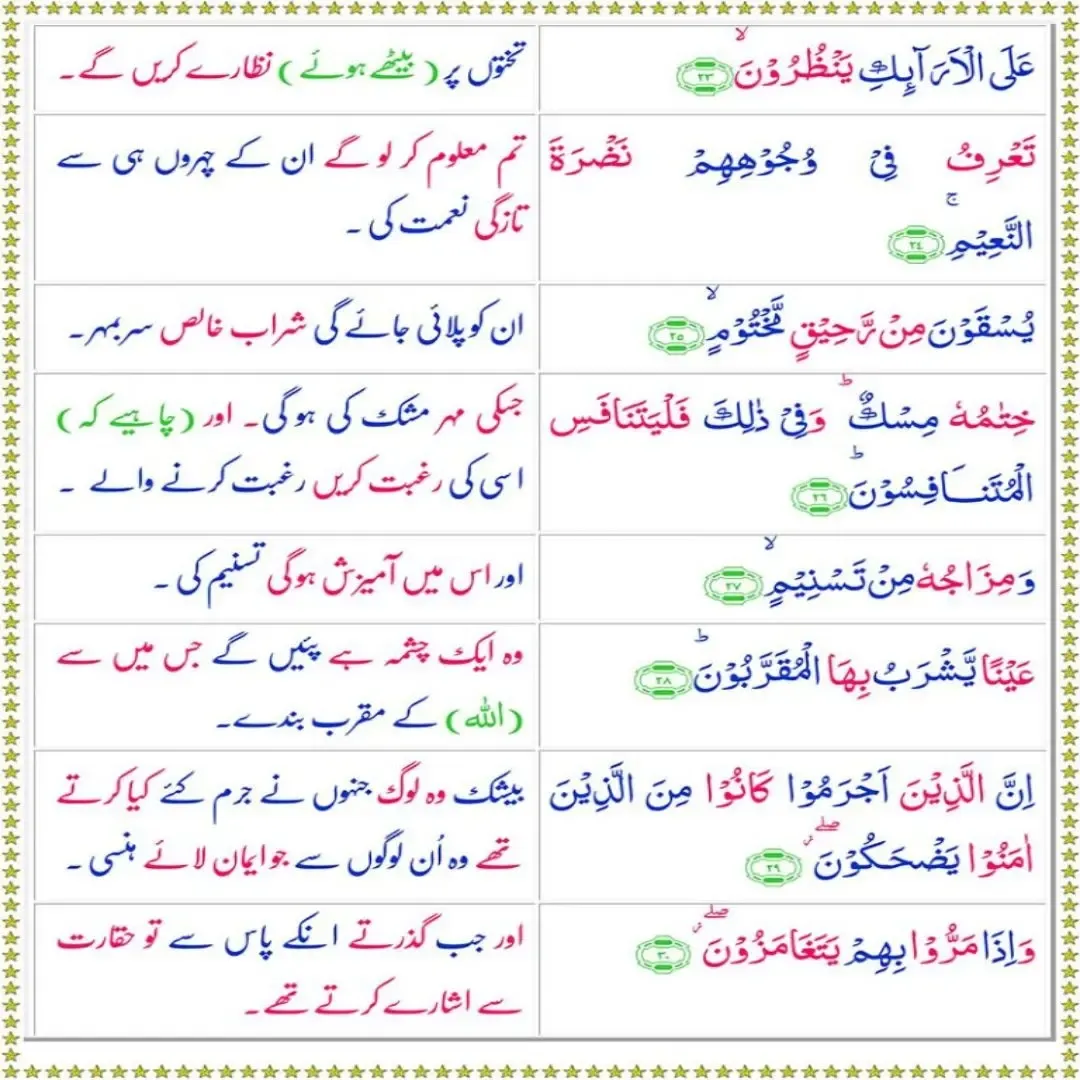 عَلَى الْاَرَآىِٕكِ يَنْظُرُوْنَۙ ۝۲۳
تختوں پر ( بیٹھے ہوئے ) نظارے کریں گے۔
تَعْرِفُ فِيْ وُجُوْهِهِمْ نَضْرَةَ
النَّعِيْمِۚ ۝۲٤
تم معلوم کر لو گے ان کے چہروں ہی سے
تازگی نعمت کی ۔
يُسْقَوْنَ مِنْ رَّحِيْقٍ مَّخْتُوْمٍۙ ۝۲۵
ان کو پلائی جائے گی شراب خالص سربمہر۔
خِتٰمُهٗ مِسْكٌؕ وَفِيْ ذٰلِكَ فَلْيَتَنَافَسِ
الْمُتَنَافِسُوْنَؕ ۝۲٦
جسکی مہر مشک کی ہو گی۔ اور ( چاہیے کہ )
اسی کی رغبت کریں رغبت کرنے والے ۔
وَمِزَاجُهٗ مِنْ تَسْنِيْمٍۙ ۝۲۷
اور اس میں آمیزش ہوگی تسنیم کی ۔
عَيْنًا يَّشْرَبُ بِهَا الْمُقَرَّبُوْنَؕ ۝۲۸
وہ ایک چشمہ ہے پئیں گے جس میں سے
( اللہ ) کے مقرب بندے۔
اِنَّ الَّذِيْنَ اَجْرَمُوْا كَانُوْا مِنَ الَّذِيْنَ
اٰمَنُوْا يَضْحَكُوْنَؗۖ ۝۲۹
بیشک وہ لوگ جنہوں نے جرم کئے کیا کرتے
تھے وہ اُن لوگوں سے جو ایمان لائے ہنسی ۔
وَاِذَا مَرُّوْا بِهِمْ يَتَغَامَزُوْنَؗۖ ۝۳۰
اور جب گذرتے انکے پاس سے تو حقارت
سے اشارے کرتے تھے۔